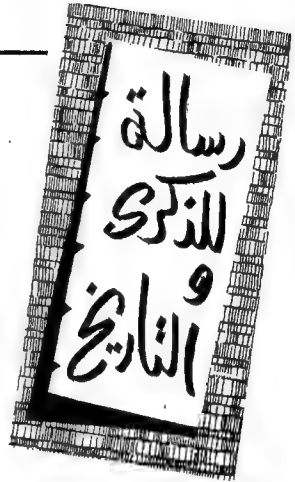 رسالة
للذكرى
و
التاريخ